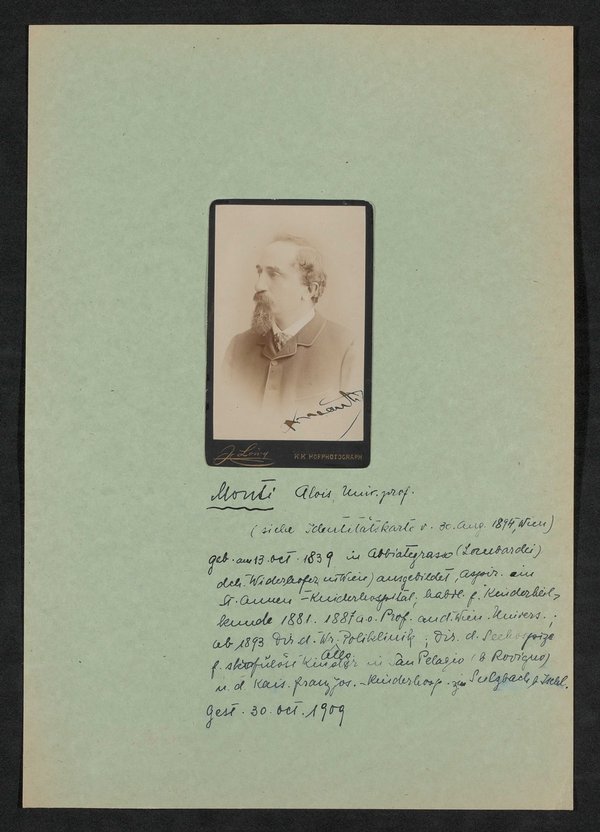 J. Löwy
K.K. HOFPHOTOGRAPH.
Monti Alois, Univ. prof.
(siehe Identitätskarte v. 30. Aug. 1894, Wien)
geb. am 13. oct. 1839 in Abbiategrasso (Lombardei)
dch. Widerhofer in Wien) ausgebildet, Aspir. am
St. Annen-Kinderhospital, habil. f. Kinderheil-
kunde 1881. 1887 a.o. Prof. an d. Wien. Univers.;
ab 1893 Dir. d. Allg. Wr. Poliklinik; Dir. d. Seehospize
f. skrofulöse Kinder in San Pelagio (b. Rovigno)
u. d. Kais. Franz Jos.-Kinderhosp. zu Sulzbach b. Ischl.
gest. 30. oct. 1909